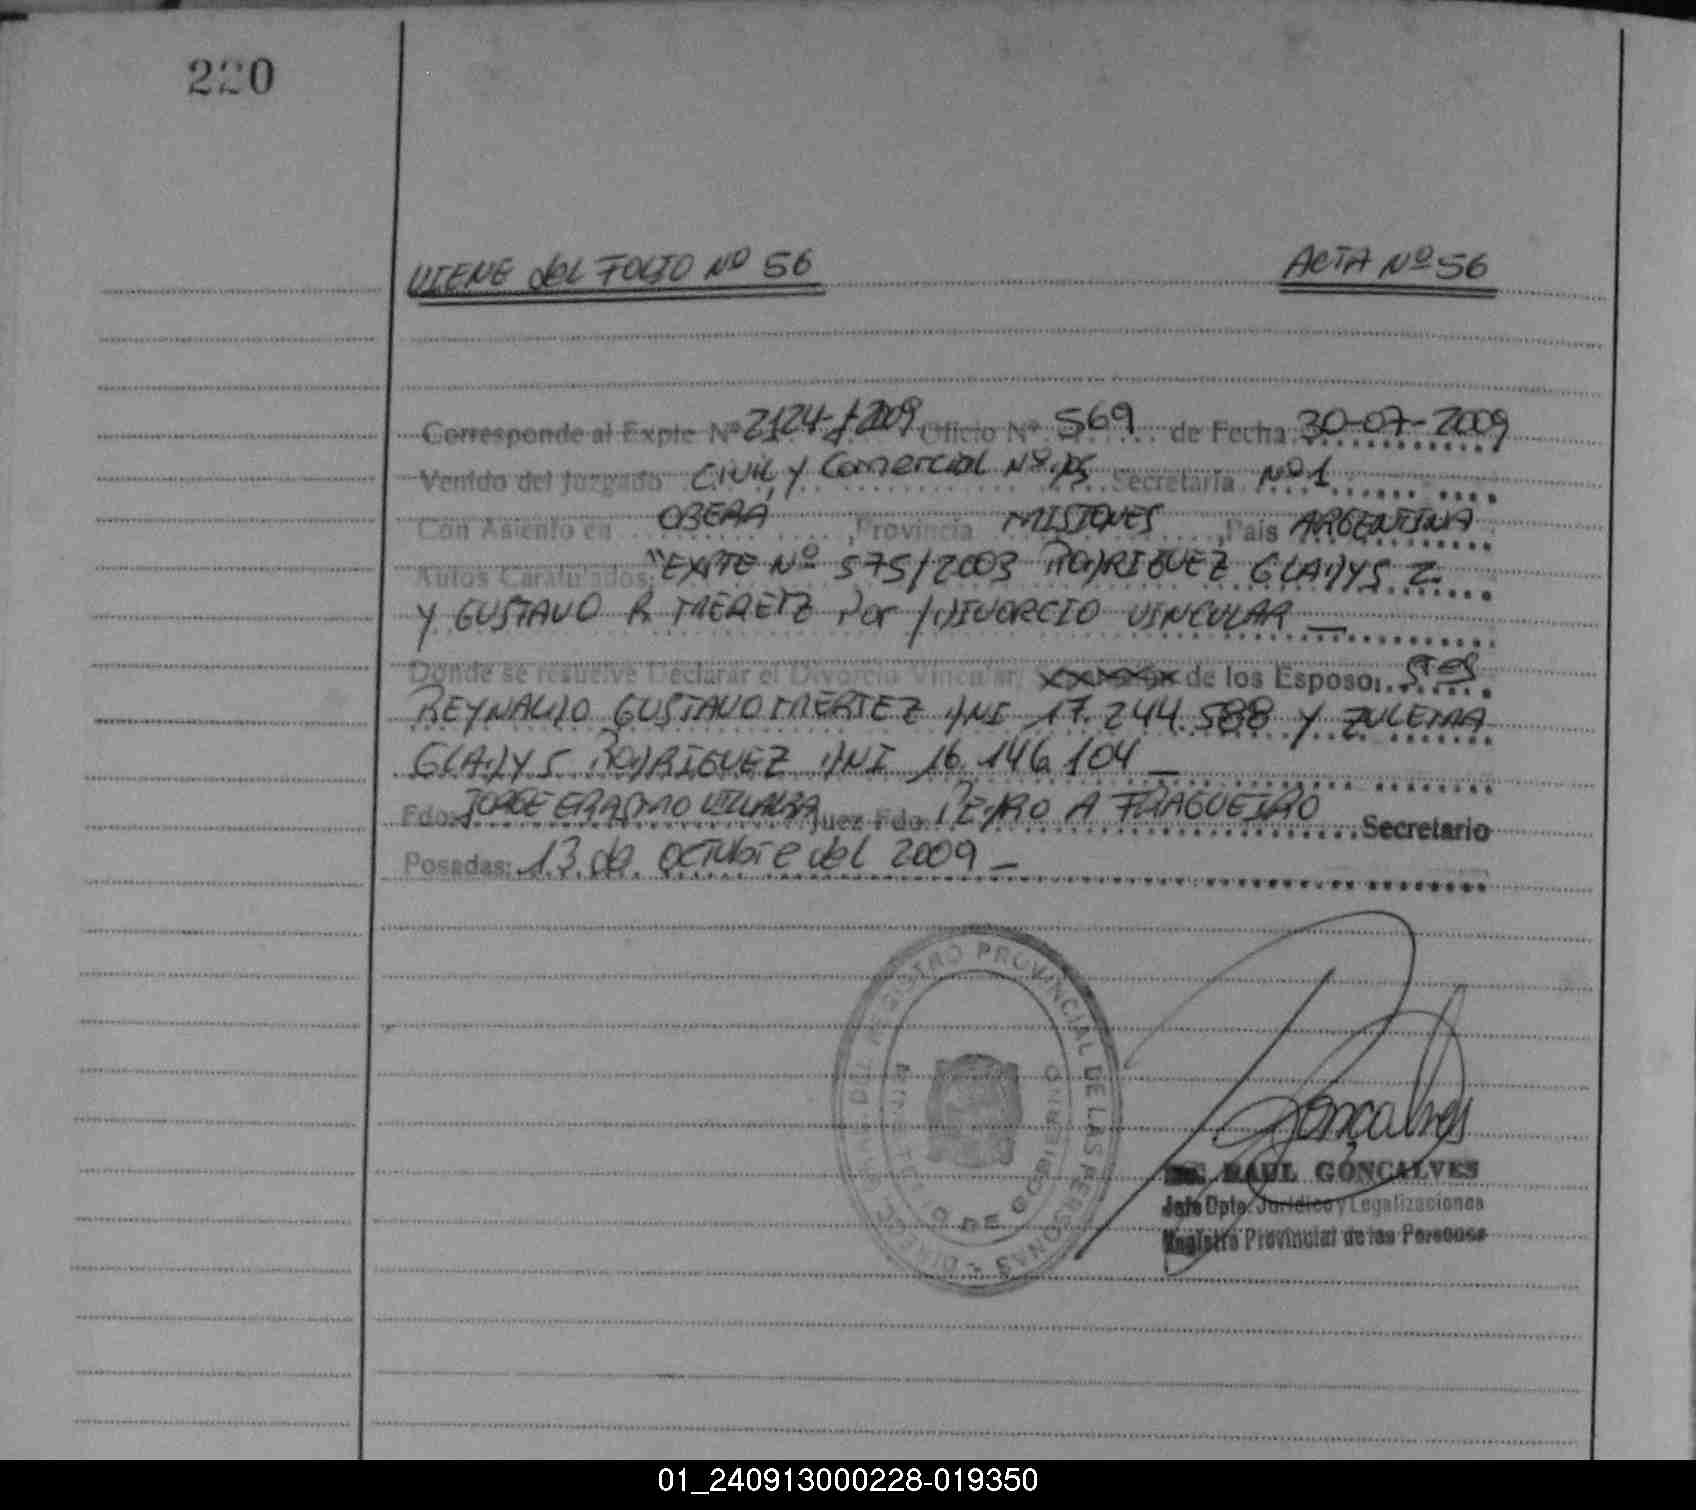 220
VIENE del FOLIO Nº 56
ACTA Nº 56
Corresponde al Expte Nº 2124-/2009 Oficio Nº 569 de Fecha 30-07-2009
Venido del Juzgado Civil y Comercial Nº Secretaría Nº 1
Con Asiento en OBERA, Provincia MISIONES, País ARGENTINA
Autos Caratulados: "EXPTE Nº 575/2003 RODRIGUEZ GLADYS Z.
Y GUSTAVO R. MERETZ Por /DIVORCIO VINCULAR
Donde se resuelve Declarar el Divorcio Vincular, de los Esposo: STES
REYNALDO GUSTAVO MERTEZ DNI 17.244.588 Y ZULEMA
GLADYS RODRIGUEZ DNI 16.146.104
Fdo: JORGE ERASMO VILLALBA Juez Fdo: PEDRO A FRAGUEIRO Secretario
Posadas: 13 de octubre del 2009
DEL REGISTRO PROVINCIAL DE LAS PERSONAS
MINISTERIO DE GOBIERNO
Gonçalves
RAUL GONÇALVES
Jefe Dpto. Jurídico y Legalizaciones
Registro Provincial de las Personas
01_240913000228-019350